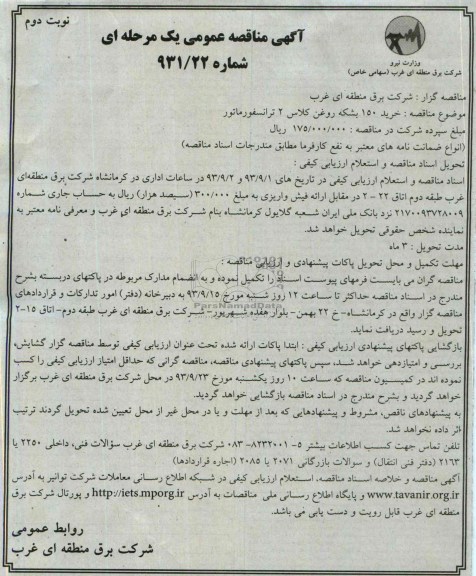 نوبت دوم
آگهی مناقصه عمومی یک مرحله ای
شماره ۹۳۱/۲۲
وزارت نیرو
شرکت برق منطقه ای غرب (سهامی خاص)
مناقصه گزار : شرکت برق منطقه ای غرب
موضوع مناقصه : خرید ۱۵۰ بشکه روغن کلاس ۲ ترانسفورماتور
مبلغ سپرده شرکت در مناقصه : ۱۷۵/۰۰۰/۰۰۰ ریال
(انواع ضمانت نامه های معتبر به نفع کارفرما مطابق مندرجات اسناد مناقصه)
تحویل اسناد مناقصه و استعلام ارزیابی کیفی :
اسناد مناقصه و استعلام ارزیابی کیفی در تاریخ های ۹۳/۹/۱ و ۹۳/۹/۲ در ساعات اداری در کرمانشاه شرکت برق منطقه‌ای
غرب طبقه دوم اتاق ۲۲ – ۲ در مقابل ارائه فیش واریزی به مبلغ ۳۰۰/۰۰۰ (سیصد هزار) ریال به حساب جاری شماره
۲۱۷۰۰۹۳۷۲۸۰۰۹ نزد بانک ملی ایران شعبه گلایول کرمانشاه بنام شرکت برق منطقه ای غرب و معرفی نامه معتبر به
نماینده شخص حقوقی تحویل خواهد شد.
مدت تحویل : ۳ ماه
مهلت تکمیل و محل تحویل پاکات پیشنهادی و ارزیابی مناقصه :
مناقصه گران می بایست فرمهای پیوست اسناد را تکمیل نموده و به انضمام مدارک مربوطه در پاکتهای دربسته بشرح
مندرج در اسناد مناقصه حداکثر تا ساعت ۱۲ روز شنبه مورخ ۹۳/۹/۱۵ به دبیرخانه (دفتر) امور تدارکات و قراردادهای
مناقصه گزار واقع در کرمانشاه-خ ۲۲ بهمن- بلوار هفده شهریور-شرکت برق منطقه ای غرب طبقه دوم-اتاق ۱۵-۲
تحویل و رسید دریافت نماید.
بازگشایی پاکتهای پیشنهادی ارزیابی کیفی : ابتدا پاکات ارائه شده تحت عنوان ارزیابی کیفی توسط مناقصه گزار گشایش،
بررسی و امتیازدهی خواهد شد، سپس پاکتهای پیشنهادی مناقصه، مناقصه گرانی که حداقل امتیاز ارزیابی کیفی را کسب
نموده اند در کمیسیون مناقصه که ساعت ۱۰ روز یکشنبه مورخ ۹۳/۹/۲۳ در محل شرکت برق منطقه ای غرب برگزار
خواهد گردید و بشرح مندرج در اسناد مناقصه بازگشایی خواهد گردید.
به پیشنهادهای ناقص، مشروط و پیشنهادهایی که بعد از مهلت و یا در محل غیر از محل تعیین شده تحویل گردند ترتیب
اثر داده نخواهد شد.
تلفن تماس جهت کسب اطلاعات بیشتر ۵- ۸۲۳۲۰۰۱- ۰۸۳ شرکت برق منطقه ای غرب سؤالات فنی، داخلی ۲۲۵۰ یا
۲۱۶۳ (دفتر فنی انتقال) و سوالات بازرگانی ۲۰۷۱ یا ۲۰۸۵ (اجاره قراردادها)
آگهی مناقصه و خلاصه اسناد مناقصه، استعلام ارزیابی کیفی در شبکه اطلاع رسانی معاملات شرکت توانیر به آدرس
www.tavanir.org.ir و پایگاه اطلاع رسانی ملی مناقصات به آدرس http://iets.mporg.ir و پورتال شرکت برق
منطقه ای غرب قابل رویت و دست یابی می باشد.
روابط عمومی
شرکت برق منطقه ای غرب
ParsNamadData